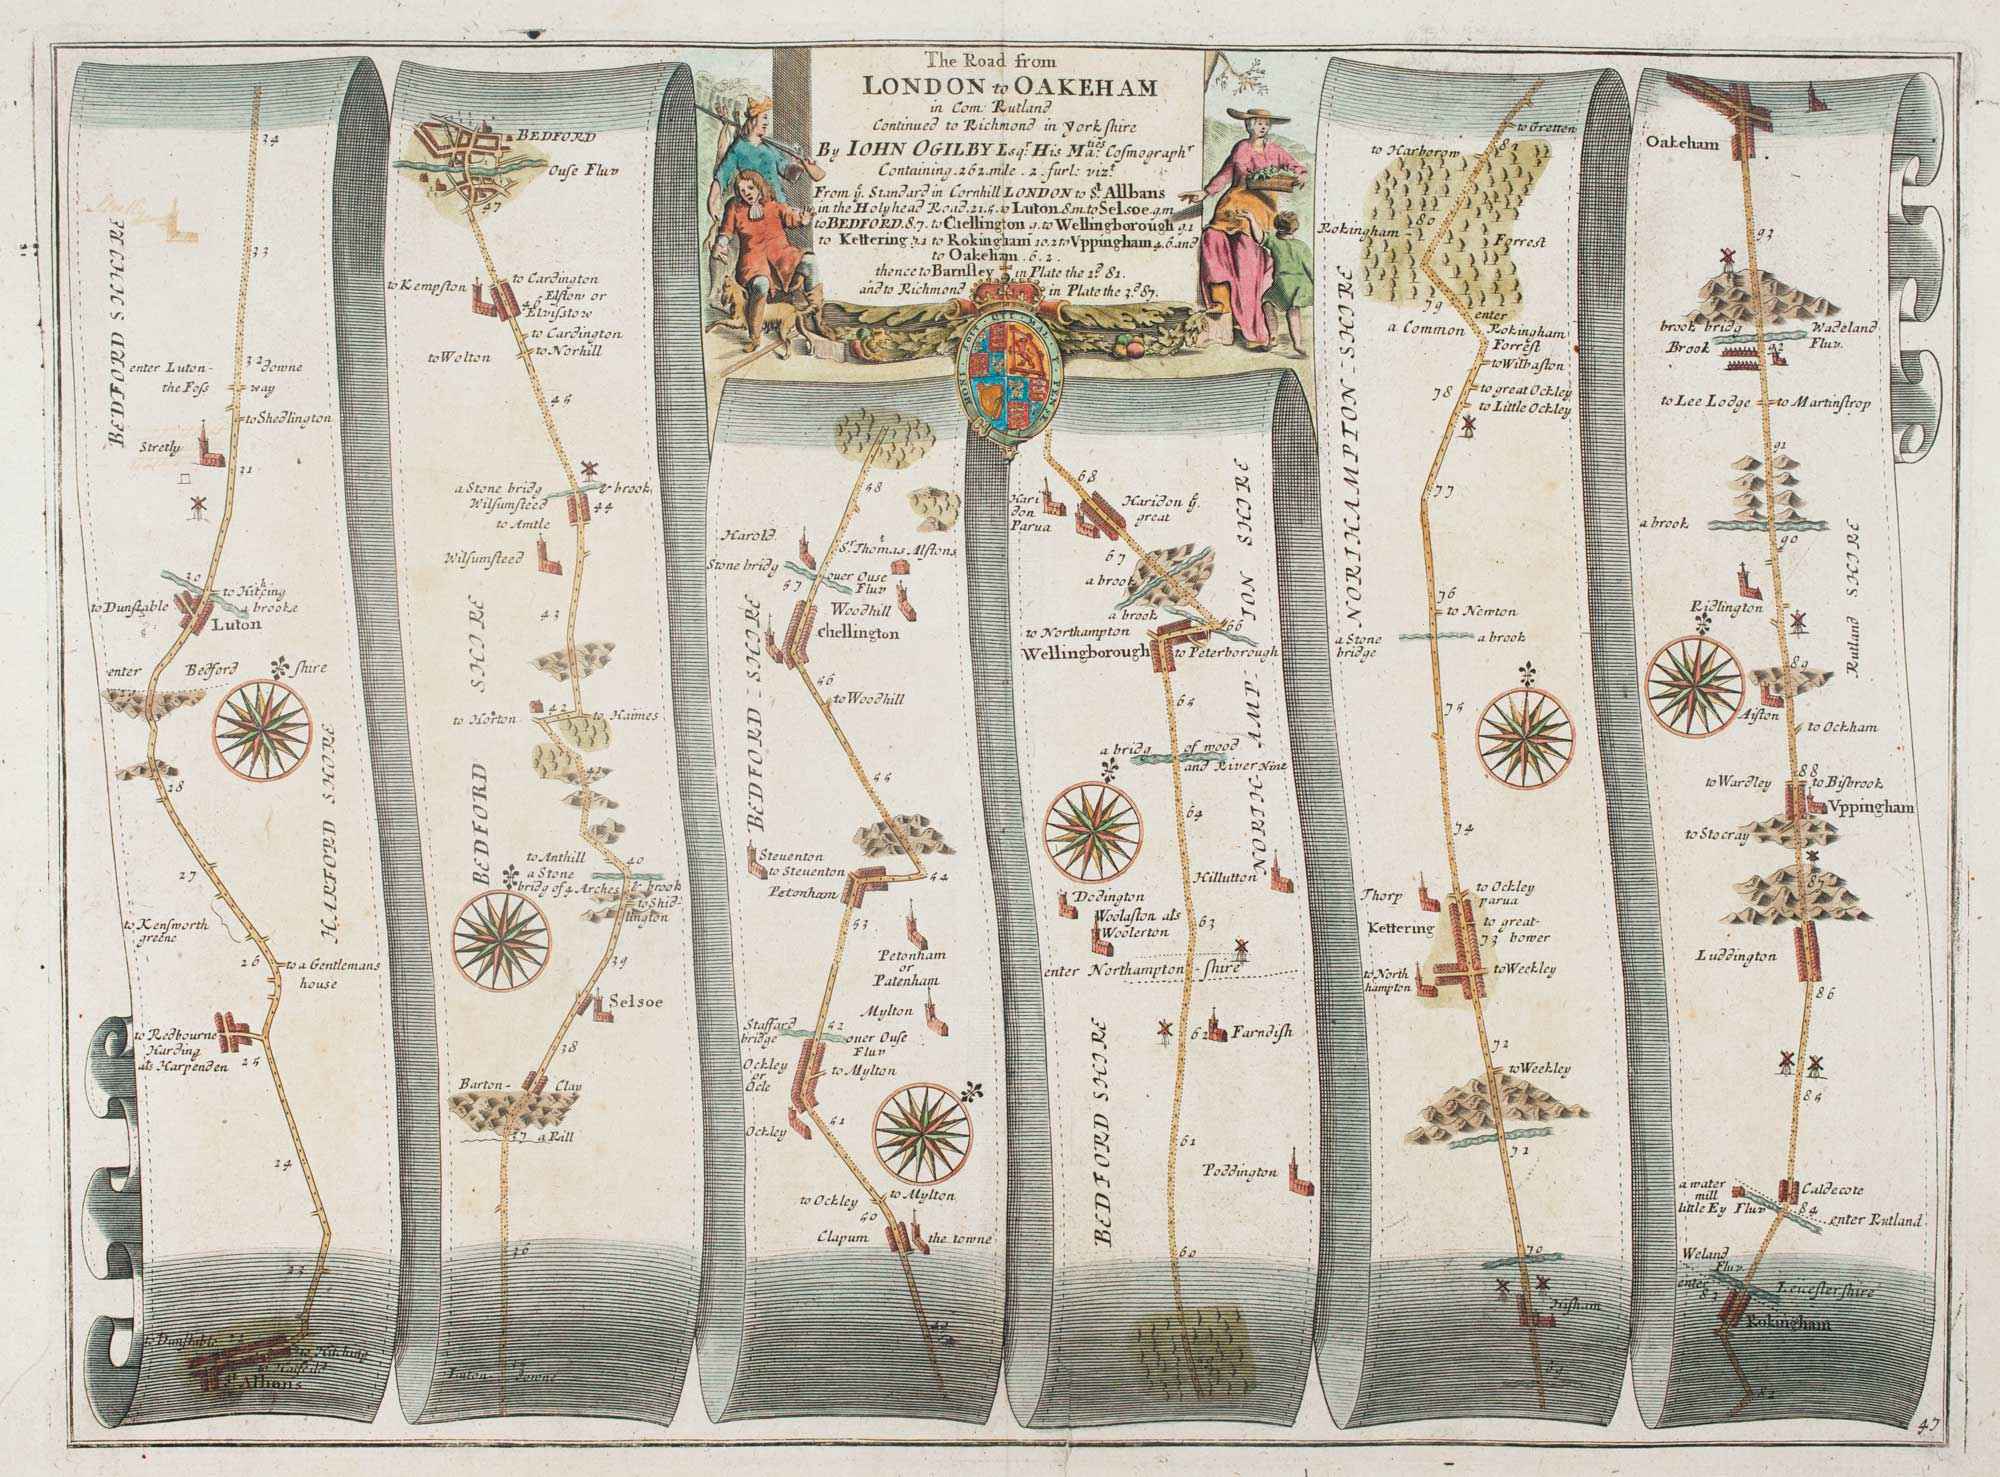 The Road from
LONDON to OAKEHAM
in Com: Rutland
Continued to Richmond in York shire
By IOHN OGILBY Esqr. His Maties. Cosmographr
Containing 262 mile 2 furl: vizt
From ye. Standard in Cornhill LONDON to St. Allbans
in the Holyhead Road 21.5. to Luton 8m. to Selsoe 9.m
to BEDFORD 8.7. to Chellington 9. to Wellingborough 9.1
to Kettering 7.1 to Rokingham 10.2 to Vppingham 4.6. and
to Oakeham . 6.2.
thence to Barnsley in Plate the 2d. 82.
and to Richmond in Plate the 3d. 87.
34
33
BEDFORD SHIRE
32
enter Luton-
the Foss
downe
way
to Shedlington
Stretly
31
30
to Hitching
a brooke
to Dunstable
Luton
enter Bedford shire
28
HARFORD SHIRE
27
to Kensworth
greene
26
to a Gentlemans
house
to Redbourne
Harding
als Harpenden
25
24
23
to Dunstable
to Hitching
to Hatfeild
St. Albons
BEDFORD
Ouse Fluv
47
to Kempston
to Cardington
46
Elstow or
Elvistow
to Cardington
to Norhill
to Wolton
45
a Stone bridg & brook
Wilsumsteed
44
to Amtle
Wilsumsteed
43
BEDFORD SHIRE
42
to Horton
to Haines
41
40
to Anthill
a Stone
bridg of 4 Arches & brook
to Shid-
lington
39
Selsoe
38
Barton- Clay
37 a Rill
36
Luton- downe
58
Harold
St. Thomas Alstons
Stone bridg
over Ouse
Fluv
57
Woodhill
Chellington
56
to Woodhill
BEDFORD - SHIRE
55
54
Steventon
to Steventon
Petonham
53
Petonham
or
Patenham
Mylton
Stafford
bridge
52
over Ouse
Fluv
Ockley
or
Ocle
to Mylton
Ockley
51
to Ockley
to Mylton
50
Clapum
the towne
49
68
Hari
don
Parua
Haridon ye.
great
67
a brook
a brook
66
to Northampton
Wellingborough
to Peterborough
65
a bridg of wood
and River Nine
NORTH-AMP-TON SHIRE
64
Hillutton
Dodington
Woolaston als
Woolerton
63
enter Northampton-shire
62
Farndish
BEDFORD SHIRE
61
Poddington
60
to Gretten
82
to Harborow
80
Rokingham
Forrest
79
enter
Rokingham
Forrest
a Common
to Wilbaston
78
to great Ockley
to Little Ockley
77
NORTHAMPTON - SHIRE
76
to Newton
a Stone
bridge
a brook
75
74
Thorp
to Ockley
parua
Kettering
to great-
73 bower
to North
hampton
to Weekley
72
to Weekley
71
70
Hisham
69
Oakeham
93
brook bridg
Wadeland
Fluv.
Brook
92
to Lee Lodge
to Martinstrop
91
a brook
90
Ridlington
Rutland SHIRE
89
Aiston
to Ockham
88
to Wardley
to Bisbrook
Vppingham
to Stocray
87
Luddington
86
85
a water
mill
little Ey Fluv
Caldecote
84
enter Rutland
Weland
Fluv.
enter Leicestershire
83
Rokingham
82
47